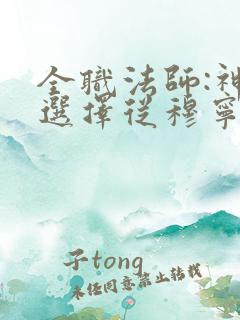 全職法師:神
選擇從穆寧
子tong
未任同意禁止转载